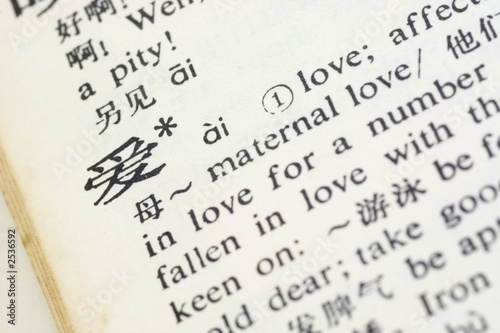 好啊! Well,
啊!
a pity!
另见 āi
爱* ài ① love; affect
母～ maternal love/ 他们
in love for a number
fallen in love with th
keen on: ～游泳 be fo
old dear; take goo
发脾气 be apt
Iron
Adobe Stock | #2536592